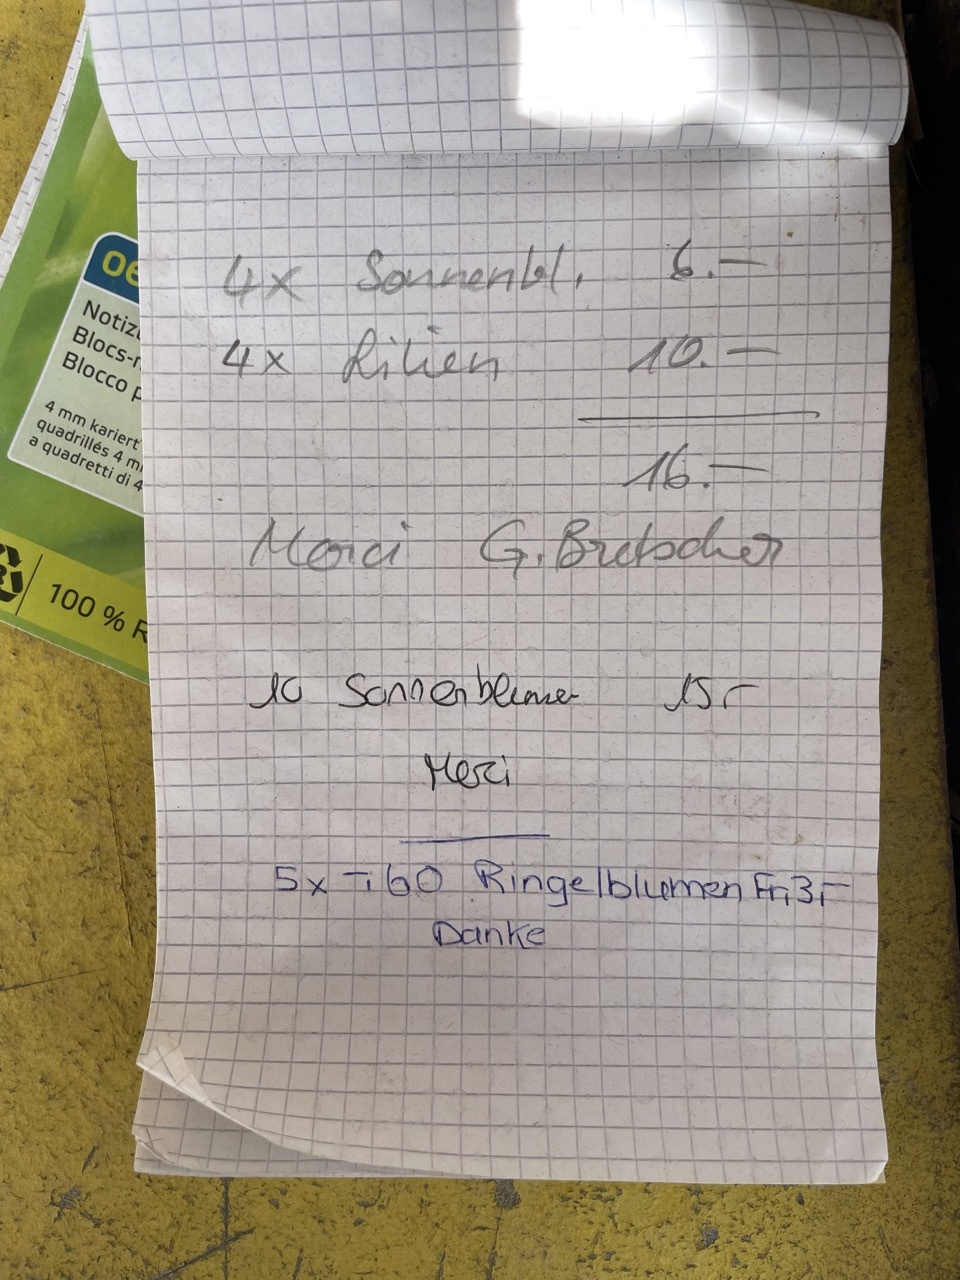 4x Sonnenbl. 6.—
4x Lilien 10.—
16.—
Merci G. Bretscher
10 Sonnenblumen 15.-
Merci
5x -.60 Ringelblumen Fr. 3.-
Danke
oe
Notiz
Blocs-
Blocco p
4 mm kariert
quadrillés 4 m
a quadretti di 4
100 % R